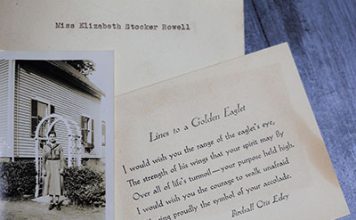 Miss Elizabeth Stocker Rowell
Lines to a Golden Eaglet
I would wish you the range of the eaglet's eye,
The strength of his wings that your spirit may fly
Over all of life's turmoil—your purpose held high.
I would wish you the courage to walk unafraid
proudly the symbol of your accolade.
Birdsall Otis Edey